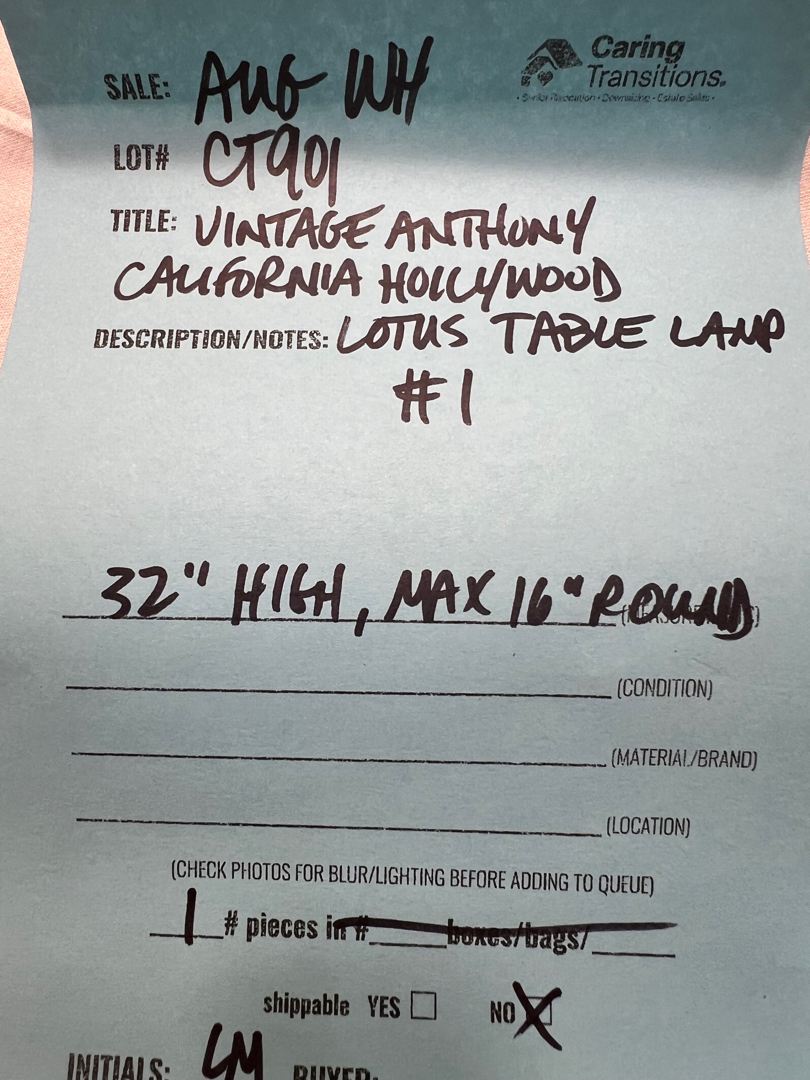 Caring
Transitions.
• Senior Relocation • Downsizing • Estate Sales •
SALE: AUG WH
LOT# CT901
TITLE: VINTAGE ANTHONY
CALIFORNIA HOLLYWOOD
DESCRIPTION/NOTES: LOTUS TABLE LAMP
#1
32" HIGH, MAX 16" ROUND
(CONDITION)
(MATERIAL/BRAND)
(LOCATION)
(CHECK PHOTOS FOR BLUR/LIGHTING BEFORE ADDING TO QUEUE)
1 # pieces in # boxes/bags/
shippable YES NO X
INITIALS: LM BUYER: